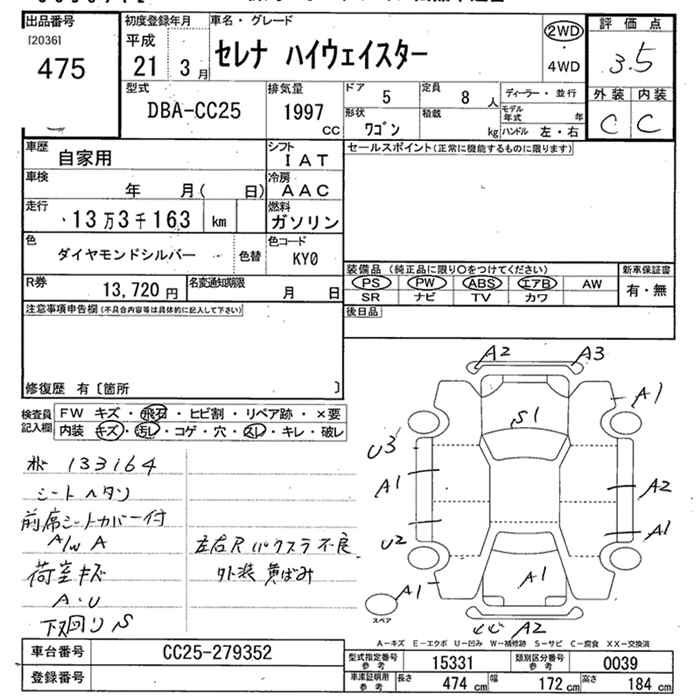 出品番号
[2036]
475
初度登録年月
平成
21 3月
車名・グレード
セレナ ハイウェイスター
2WD
4WD
評価点
3.5
外装 内装
C C
型式
DBA-CC25
排気量
1997
CC
ドア
5
定員
8 人
形状
ワゴン
積載
kg
ディーラー・並行
モデル年式
年
ハンドル 左・右
車歴
自家用
シフト
IAT
車検
年 月( 日)
冷房
AAC
走行
13万3千163 km
燃料
ガソリン
色
ダイヤモンドシルバー
色替
色コード
KY0
R券
13,720 円
名変通知期限
月 日
セールスポイント(正常に機能するものに限ります)
装備品 (純正品に限り○をつけてください)
PS PW ABS エアB AW
SR ナビ TV カワ
新車保証書
有・無
後日品
注意事項申告欄(不具合内容等は具体的に記入して下さい)
修復歴 有〔箇所 〕
検査員記入欄
FW キズ・飛石・ヒビ割・リペア跡・×要
内装 キズ・汚レ・コゲ・穴・スレ・キレ・破レ
133164
シートヘタリ
前席シートカバー付
A/W A
荷室キズ
A・U
下回りS
左右Rバクスラ不良
外装黄ばみ
A2 A3
A1
S1
U3
A1
A2
U2
A1
A1
A1
A2
スペア
A-キズ E-エクボ U-凹み W-補修跡 S-サビ C-腐食 XX-交換済
車台番号
CC25-279352
登録番号
型式指定番号
参考
15331
類別区分番号
参考
0039
車庫証明用
参考
長さ 474 cm 幅 172 cm 高さ 184 cm